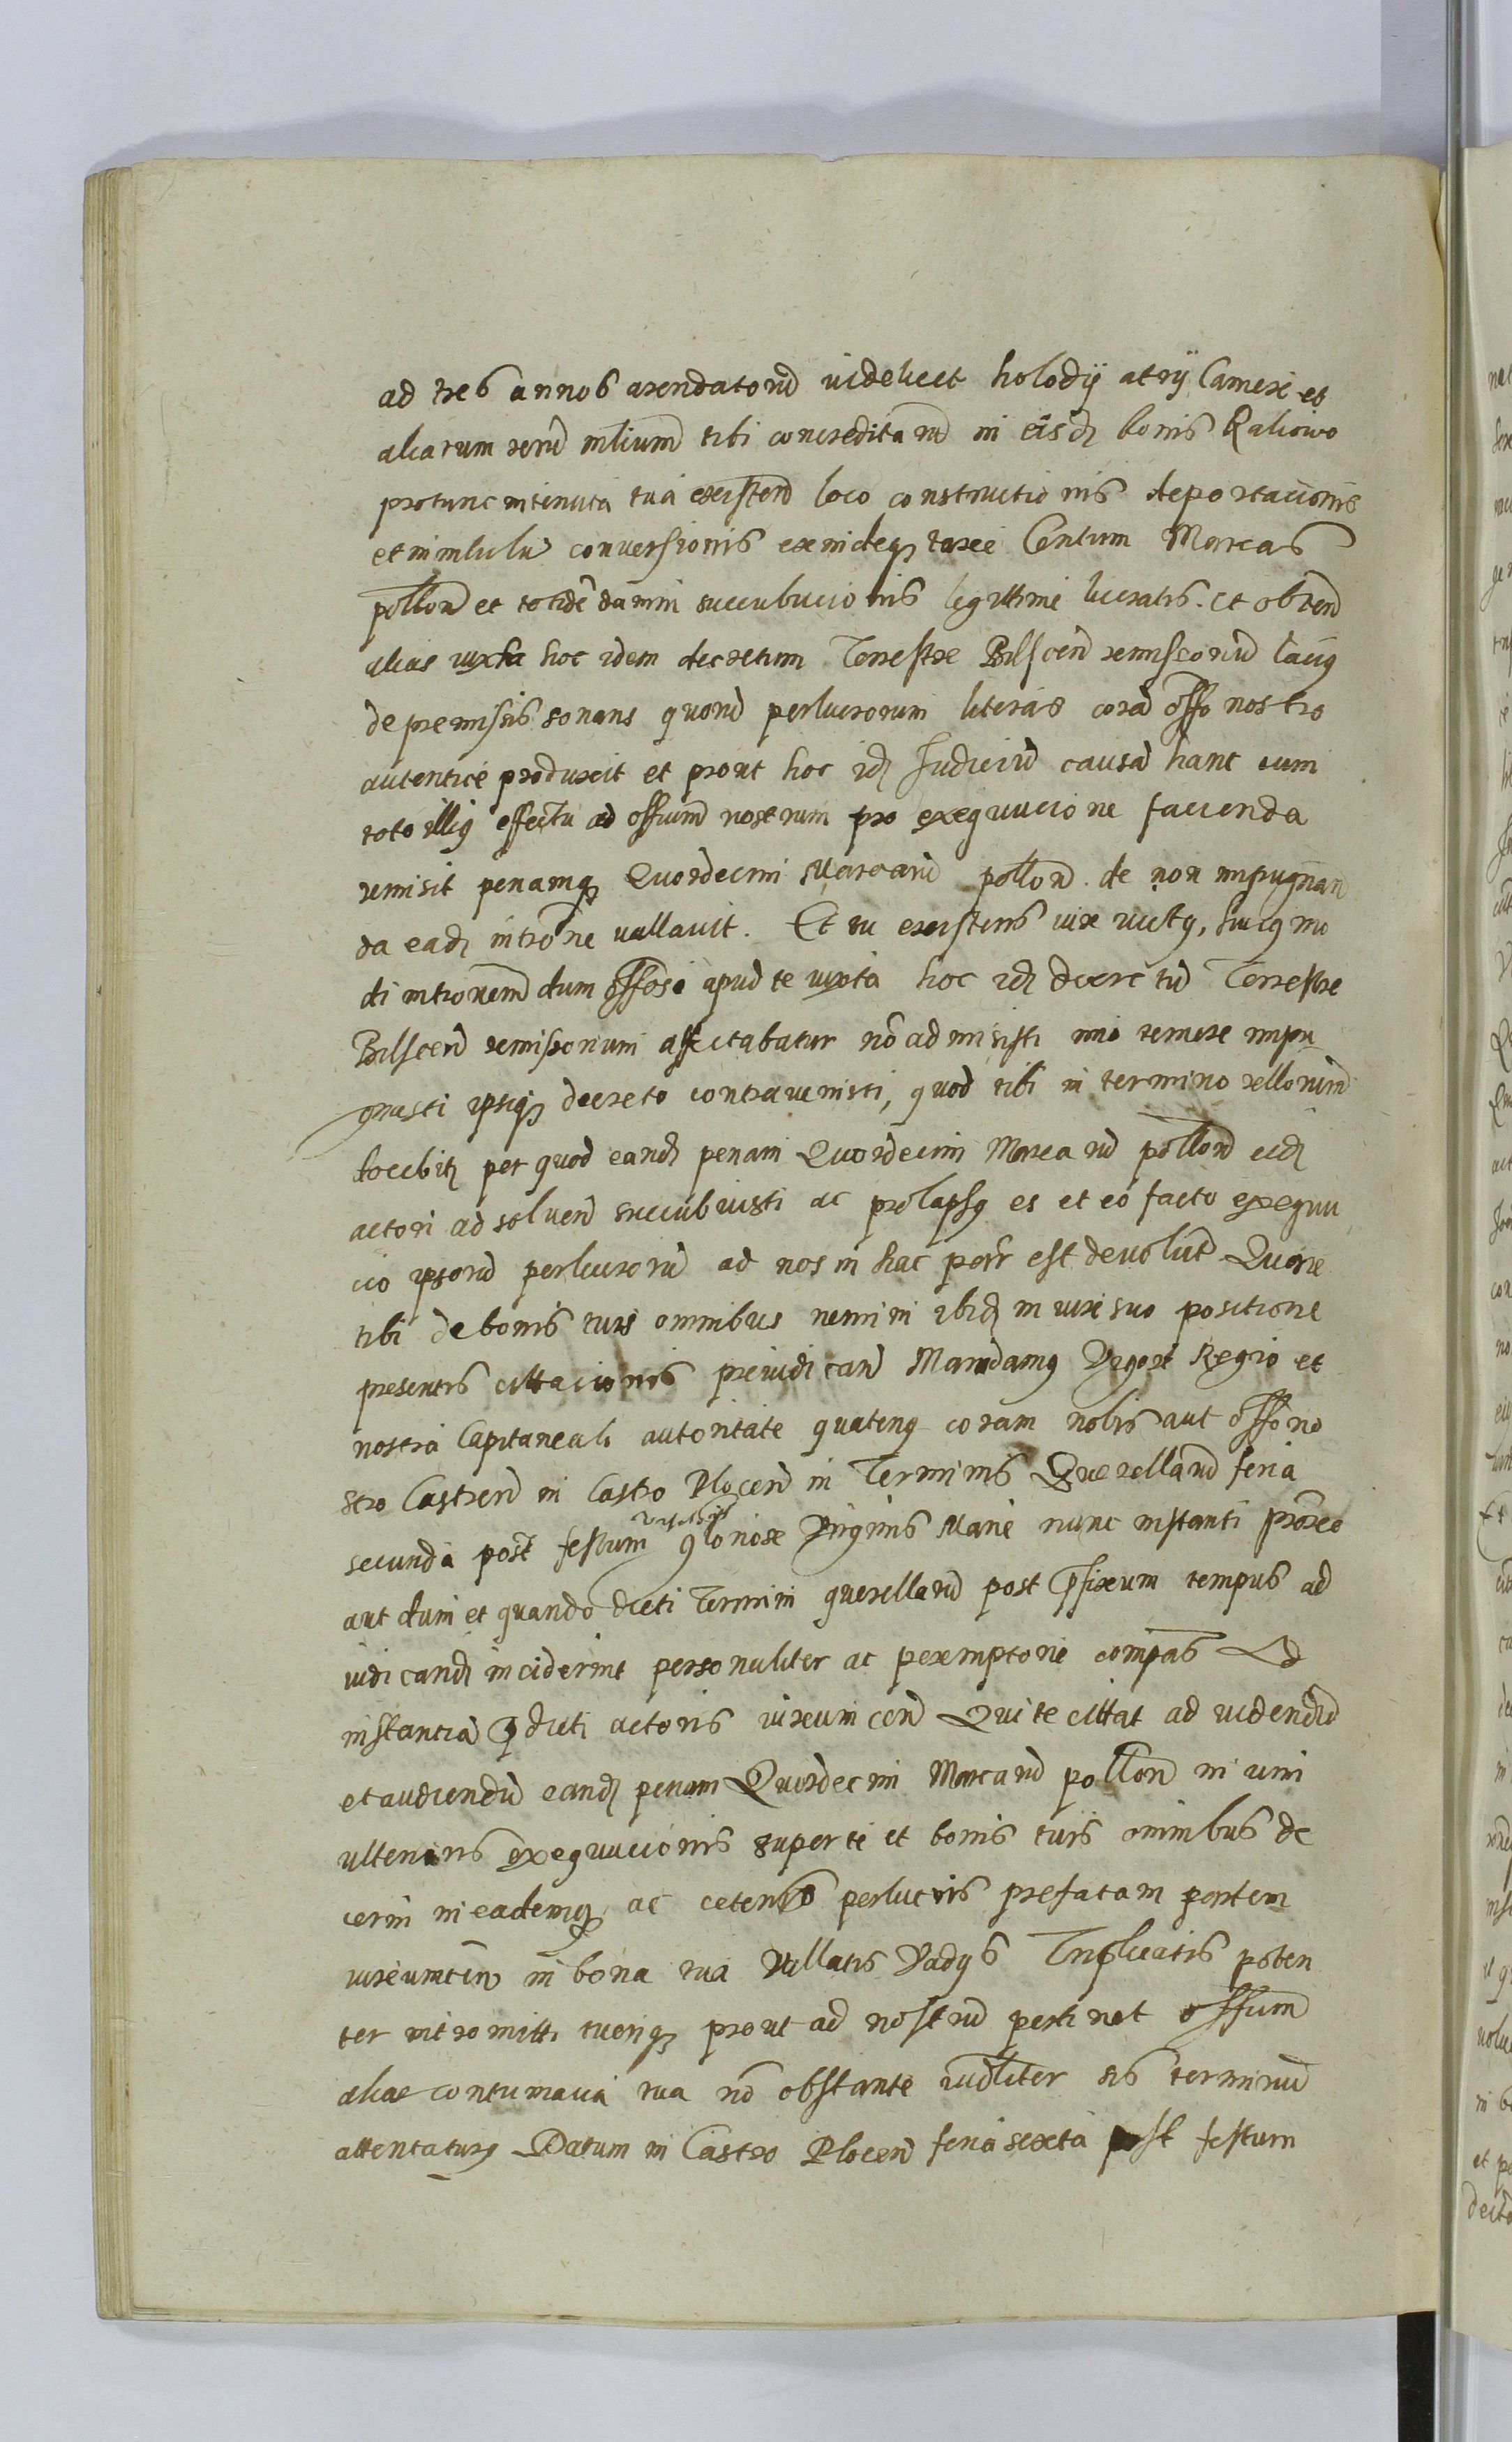 ad tres annos arendatorũ videlicet holodÿ atrÿ Camere et
aliarum rerũ mliumῦ tibi concreditarũ in eisdꝫ bonis Raliowo
protunc in tenuta tua existenῦ loco constructionis deportacionis
et in conversionis exindeqꝫ taxe Centum Marcas
pollonῦ et totidē damni succubucionis legittime lucratis. et obtenῦ
alias iuxta hoc idem decretum Terrestre Bilscenῦ remissoriũ
de premissis sonans quorũ perlucrorum literas corã offo nostro
autentice produxit et prout hoc idꝫ Iudiciũ causã hanc cum
toto illius effectu ad offiumῦ nostrum pro exequucione facienda
remisit penamqꝫ Quordecim Marcarũ pollonῦ. de non impugnan
da eadꝫ introne vallavit. Et tu existens iure victus, huiusmo
di intronemῦ dum offose apud te iuxta hoc idꝫ decretũ Terrestre
Bilscenῦ remissorium affectabatur nõ admisisti imo temere impu
gnasti ipsiqꝫ decreto contravenisti, quod tibi in termino rellorumῦ
docebitꝫ per quod eandꝫ penam Quordecim Marcarũ pollonῦ eidꝫ
actori ad solvenῦ succubuisti ac prolapsus es et eo facto exequu
cio ipsorũ perlucrorũ ad nos in hac parte est devoluta Quare
tibi de bonis tuis omnibus nemini ibidꝫ in iure suo positione
presentis cittacionis preiudicanῦ Mandamus Vigore Regio et
nostra Capitaneali autoritate quatenus coram nobis aut offo no
stro Castrenῦ in Castro Plocenῦ in Terminis Querellarũ feria
secunda post festum gloriose Virginis Marie nunc instanti
aut dum et quando dicti Termini querellarũ post pfixum tempus ad
iudicandꝫ inciderint personaliter ac peremptorie compas Ad
instantiã pdicti actoris iureumcenῦ Qui te cittat ad videndũ
et audiendũ eandꝫ penam Quordecim Marcarũ pollonῦ in vim
ulterioris exequucionis super te et bonis tuis omnibus de
cerni in eademqꝫ ac ceteris perlucris prefatam partem
iureumcenῦ in bona tua Vallatis Vadÿs Triplicatis poten
ter intromitti tueriqꝫ prout ad nostrũ pertinet offiumῦ
alias contumacia tua nõ obstante iudliter sis terminũ
attentaturus Datum in Castro Plocenῦ feria sexta post festum